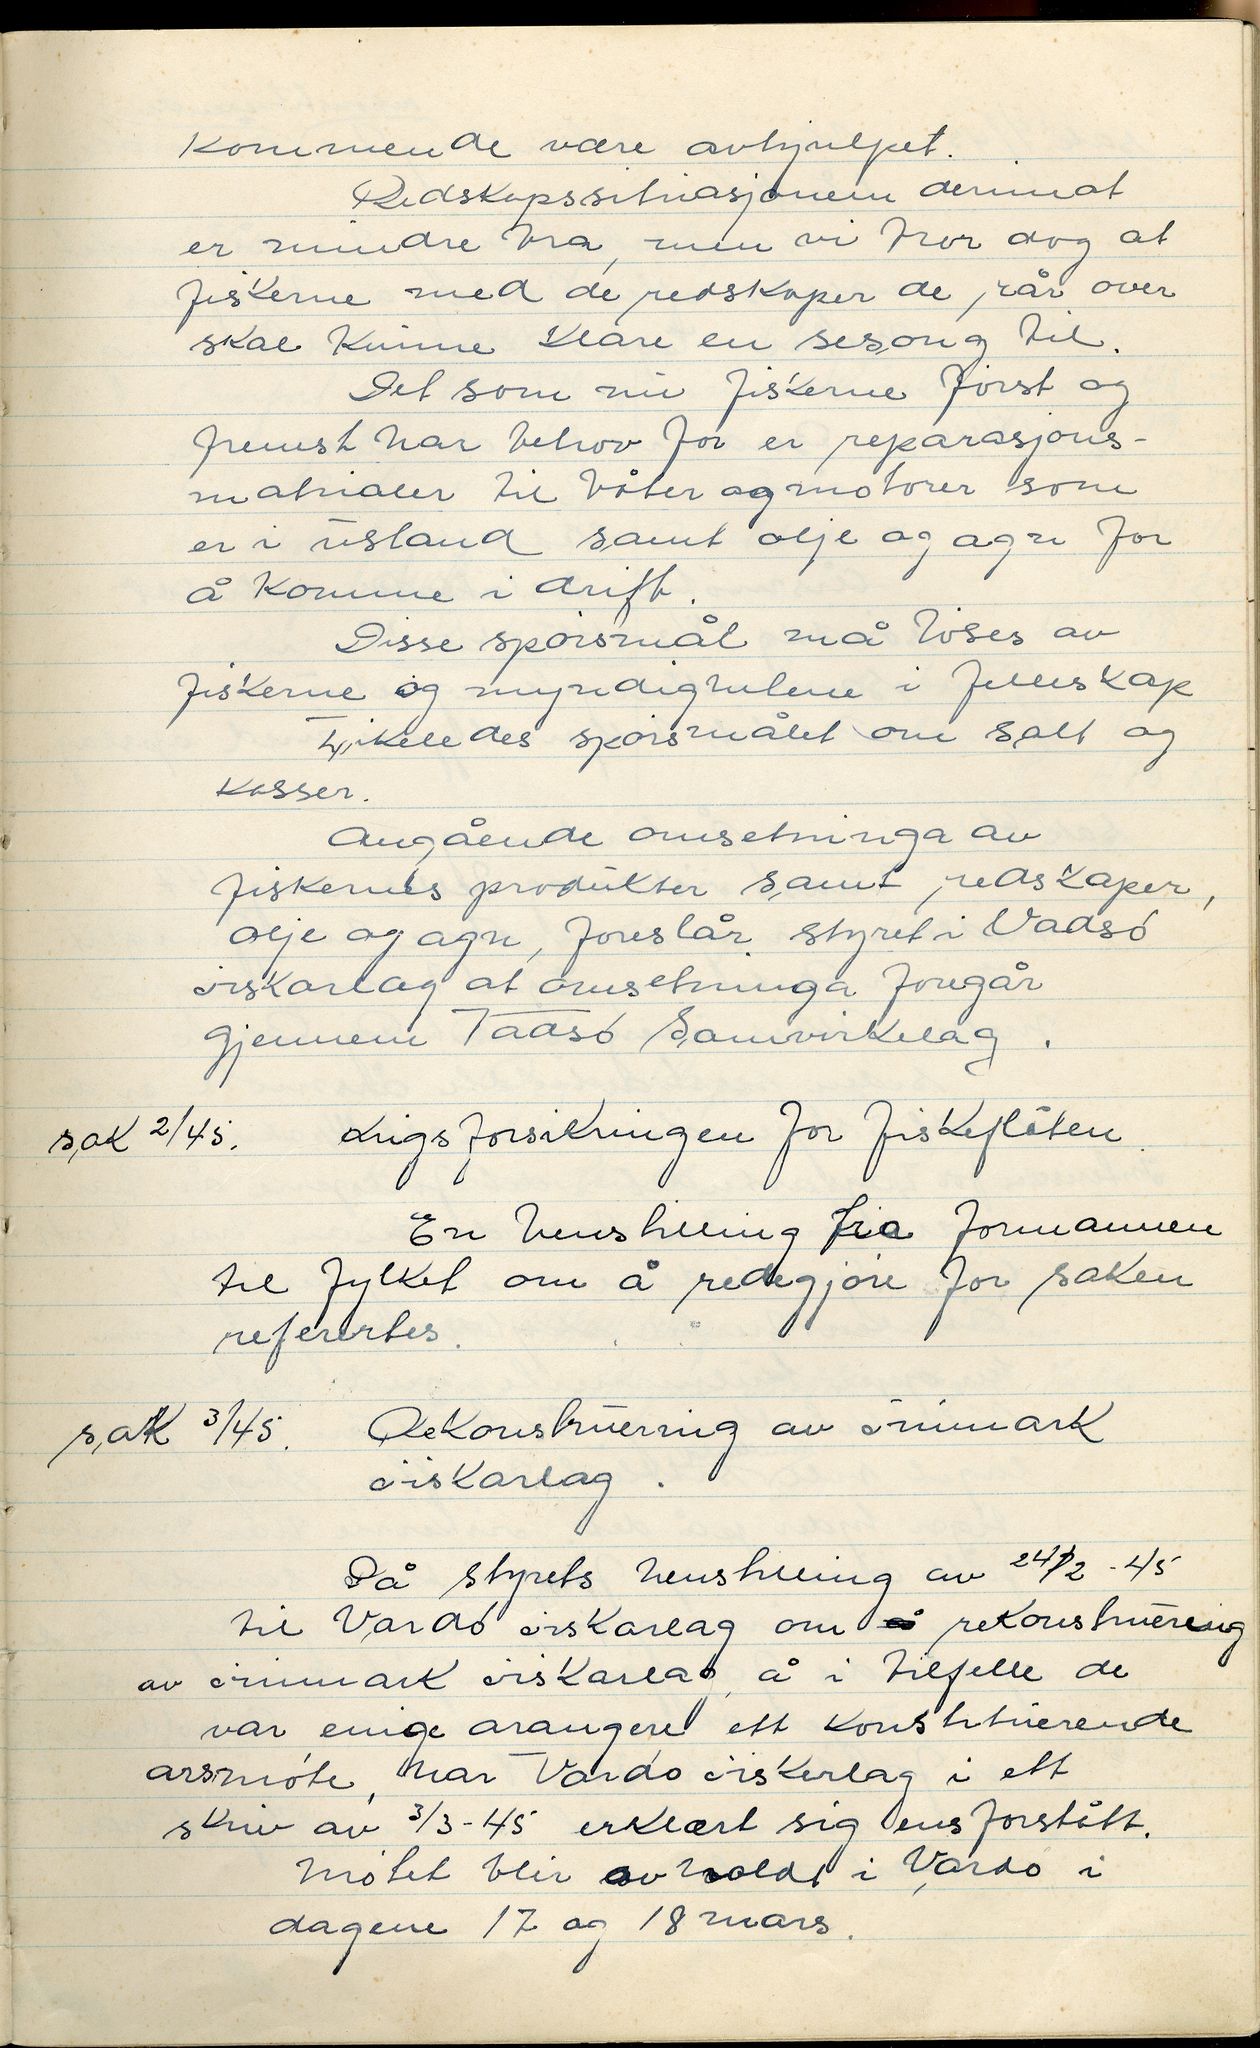 kommende være avhjulpet.
Redskapssituasjonen derimot
er mindre bra, men vi tror dog at
fiskerne med de redskaper de rår over
skal kunne klare en sesong til.
Det som nu fiskerne først og
fremst har behov for er reparasjons-
matrialer til båter og motorer som
er i ustand samt olje og agn for
å komme i drift.
Disse spørsmål må løses av
fiskerne og myndighetene i felleskap
Likeledes spørsmålet om salt og
kasser.
Angående omsetninga av
fiskernes produkter samt redskaper,
olje og agn, foreslår styret i Vadsø
Fiskarlag at omsetninga foregår
gjennem Vadsø Samvirkelag.
sak 2/45. Krigsforsikringen for fiskeflåten.
En henstilling fra formannen
til fylket om å redegjøre for saken
refertes.
sak 3/45. Rekonstruering av Finnmark
Fiskarlag.
På styrets henstilling av 24/2-45
til Vardø Fiskarlag om rekonstruering
av Finnmark Fiskarlag, å i tilfelle de
var enige arangere ett konstituerende
arsmøte, har Vardø Fiskerlag i ett
skriv av 3/3-45 erklært sig ensforstått.
Møtet blir avholdt i Vardø i
dagene 17 og 18 mars.